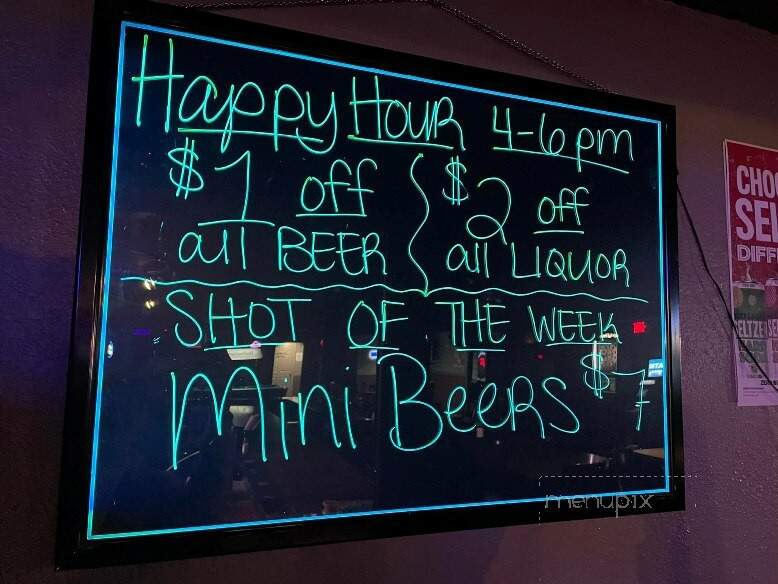 Happy Hour 4-6pm
$1 off
all BEER
$2 off
all LIQUOR
SHOT OF THE WEEK
Mini Beers $7
CHOO
SEL
DIFF
ELTZE
menupix